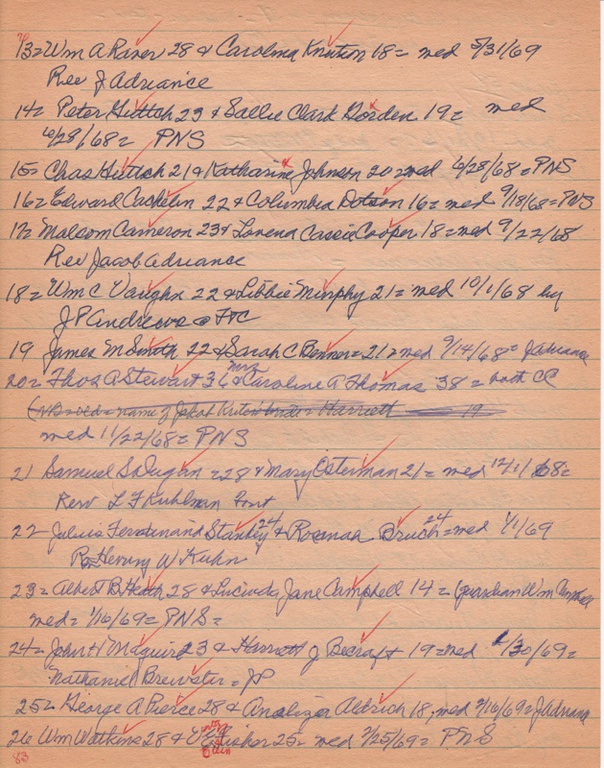 13= Wm A Raver 28 & Carolina Knutson 18= med 5/31/69
Rev J Adriance
14= Peter Huttch 23 & Sallie Clark Gorden 19= med
6/28/68= PNS
15= Chas Huttch 21 & Katharine Johnson 20= med 6/28/68= PNS
16= Edward Cachelin 22 & Columbia Dotson 16= med 9/18/68= PNS
17= Malcom Cameron 23 & Lovena Cassie Cooper 18= med 9/22/68
Rev Jacob Adriance
18= Wm C Vaughn 22 & Libbie Murphy 21= med 10/1/68 by
JP Andrews @ FtC
19 James M Smith 22 & Sarah C Bonner= 21= med 9/14/68= J Adriance
20= Thos A Stewart 36 & Mrs Caroline A Thomas 38= both CC
med 11/22/68= PNS
21 Samuel S Dugan = 28 & Mary Osterman 21= med 12/1/68=
Rev L F Kuhlman
22 Julius Ferdinand Stanley 24 & Roxanah Bruch 24= med 1/1/69
Henry W Kuhn
23= Albert B Heath 28 & Lucinda Jane Campbell 14= (guardian Wm Campbell
med= 1/16/69= PNS=
24= John H Maguire 23 & Harriett J Becraft 19= med 1/30/69=
Nathaniel Brewster= JP
25= George A Pierce 28 & Analiza Aldrich 18, med 2/16/69= J Adriance
26 Wm Watkins 28 & Fisher 25= med 2/25/69= PNS
83